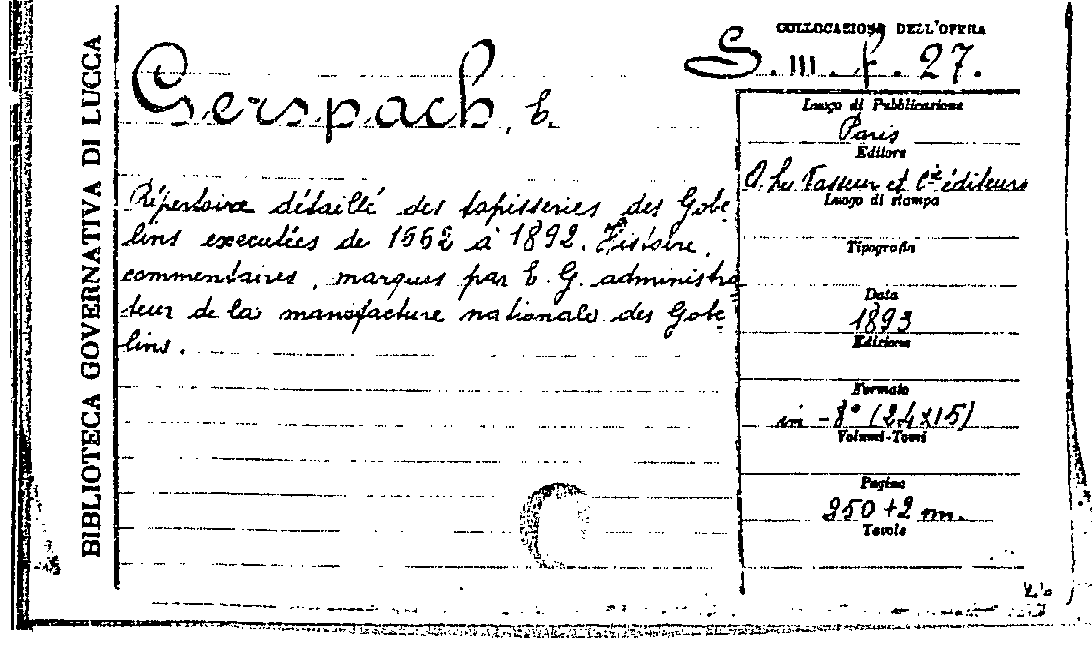 BIBLIOTECA GOVERNATIVA DI LUCCA
COLLOCAZIONE DELL'OPERA
S. III. f. 27.
Gerspach, E.
Répertoire détaillé des tapisseries des Gobe
lins executées de 1662 à 1892. Histoire,
commentaires, marques par E. G. administra-
teur de la manofacture nationale des Gobe
lins.
Luogo di Pubblicazione
Paris
Editore
A. Le Vasseur et C.ie éditeurs
Luogo di stampa
Tipografia
Data
1893
Edizione
Formato
in -8° (24x15)
Volumi-Tomi
Pagine
250+2 nn.
Tavole